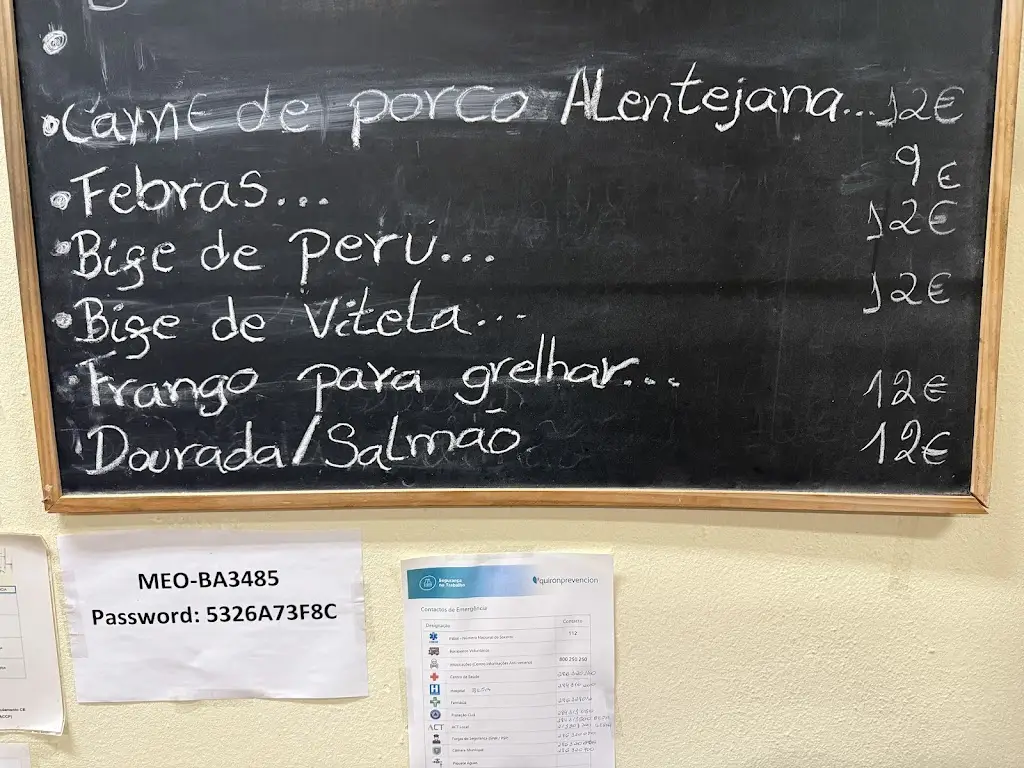 Carne de porco ALentejana... 12€
Febras... 9€
Bife de peru... 12€
Bife de Vitela... 12€
Frango para grelhar... 12€
Dourada/Salmão 12€
MEO-BA3485
Password: 5326A73F8C
Segurança no Trabalho
quironprevencion
Contactos de Emergência
Designação Contacto
112
Bombeiros Voluntários
800 250 250
Centro de Saúde
Hospital
Farmácia
Proteção Civil
ACT
Câmara Municipal